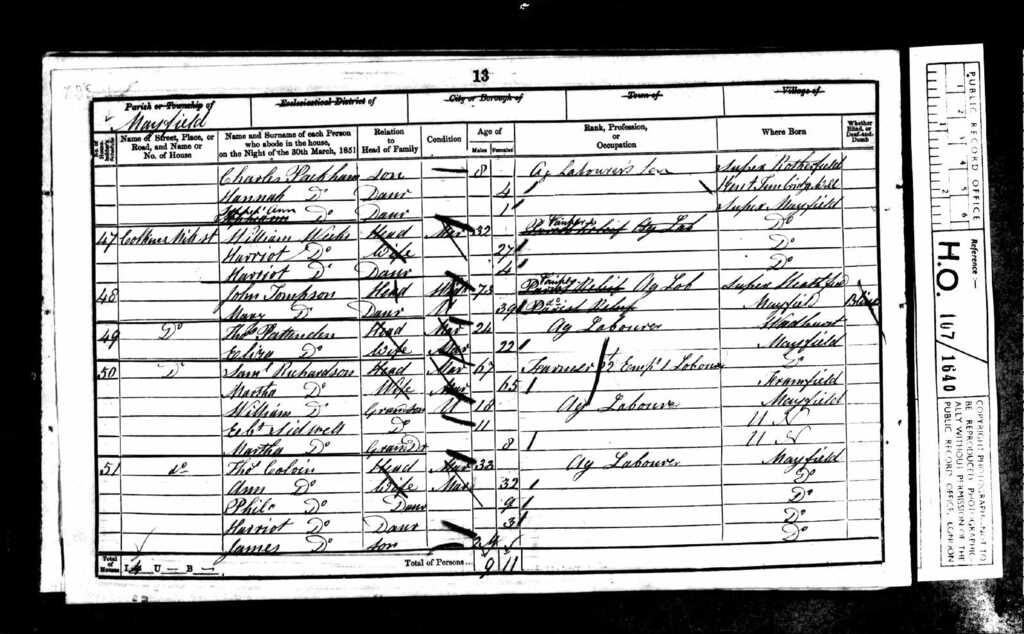 13
Parish or Township of
Ecclesiastical District of
City or Borough of
Town of
Village of
Mayfield
Name of Street, Place, or Road, and Name or No. of House
Name and Surname of each Person who abode in the house, on the Night of the 30th March, 1851
Relation to Head of Family
Condition
Age of
Males Females
Rank, Profession, or Occupation
Where Born
Whether Blind, or Deaf-and-Dumb
Charles Packham son 8 Ag Labourer's son Sussex Rotherfield
Hannah Do Daur 4 Kent Tunbridge Well
Ann Do Daur 1 Sussex Mayfield
47 William Weeks Head Mar 32 Relief Ag Lab Do
Harriot Do Wife 27 Do
Harriot Do Daur 4 Do
48 John Tompson Head 73 Relief Ag Lab Sussex
Mary Do Daur U 39 Parish Relief Mayfield Blind
49 Do Thos Head Mar 24 Ag Labourer Wadhurst
Eeliza Do Wife Mar 22 Mayfield
50 Do Saml Richardson Head Mar 67 Farmer Empg 1 Labourer Do
Martha Do Wife Mar 65 Framfield
William Do Grandson U 18 Ag Labourer Mayfield
Sidwell Do 11 U N
Martha Do 8 U N
51 do Thos Colvin Head Mar 33 Ag Labourer Mayfield
Ann Do Wife Mar 32 Do
Do Daur 9 Do
Harriot Do Daur 3 Do
James Do son Do
Total of Houses I 4 U — B —
Total of Persons... 9 11
PUBLIC RECORD OFFICE
1 2 3 4 5 6
Reference:—
H.O. 107/1640
COPYRIGHT PHOTOGRAPH—NOT TO BE REPRODUCED PHOTOGRAPHICALLY WITHOUT PERMISSION OF THE PUBLIC RECORD OFFICE, LONDON